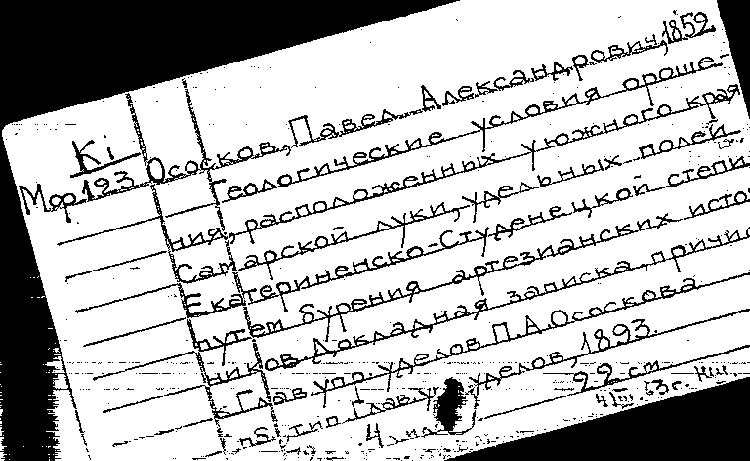 Ki
Мф123
Ососков, Павел Александрович, 1852
Геологические условия ороше-
ния, расположенных у южного края
Самарской луки, удельных полей
Екатериненско-Студенецкой степи
путем бурения артезианских исто
ников. Докладная записка, причис
к Глав. упр. уделов П.А. Ососкова
СпБ, тип. Глав. уделов, 1893.
22 см